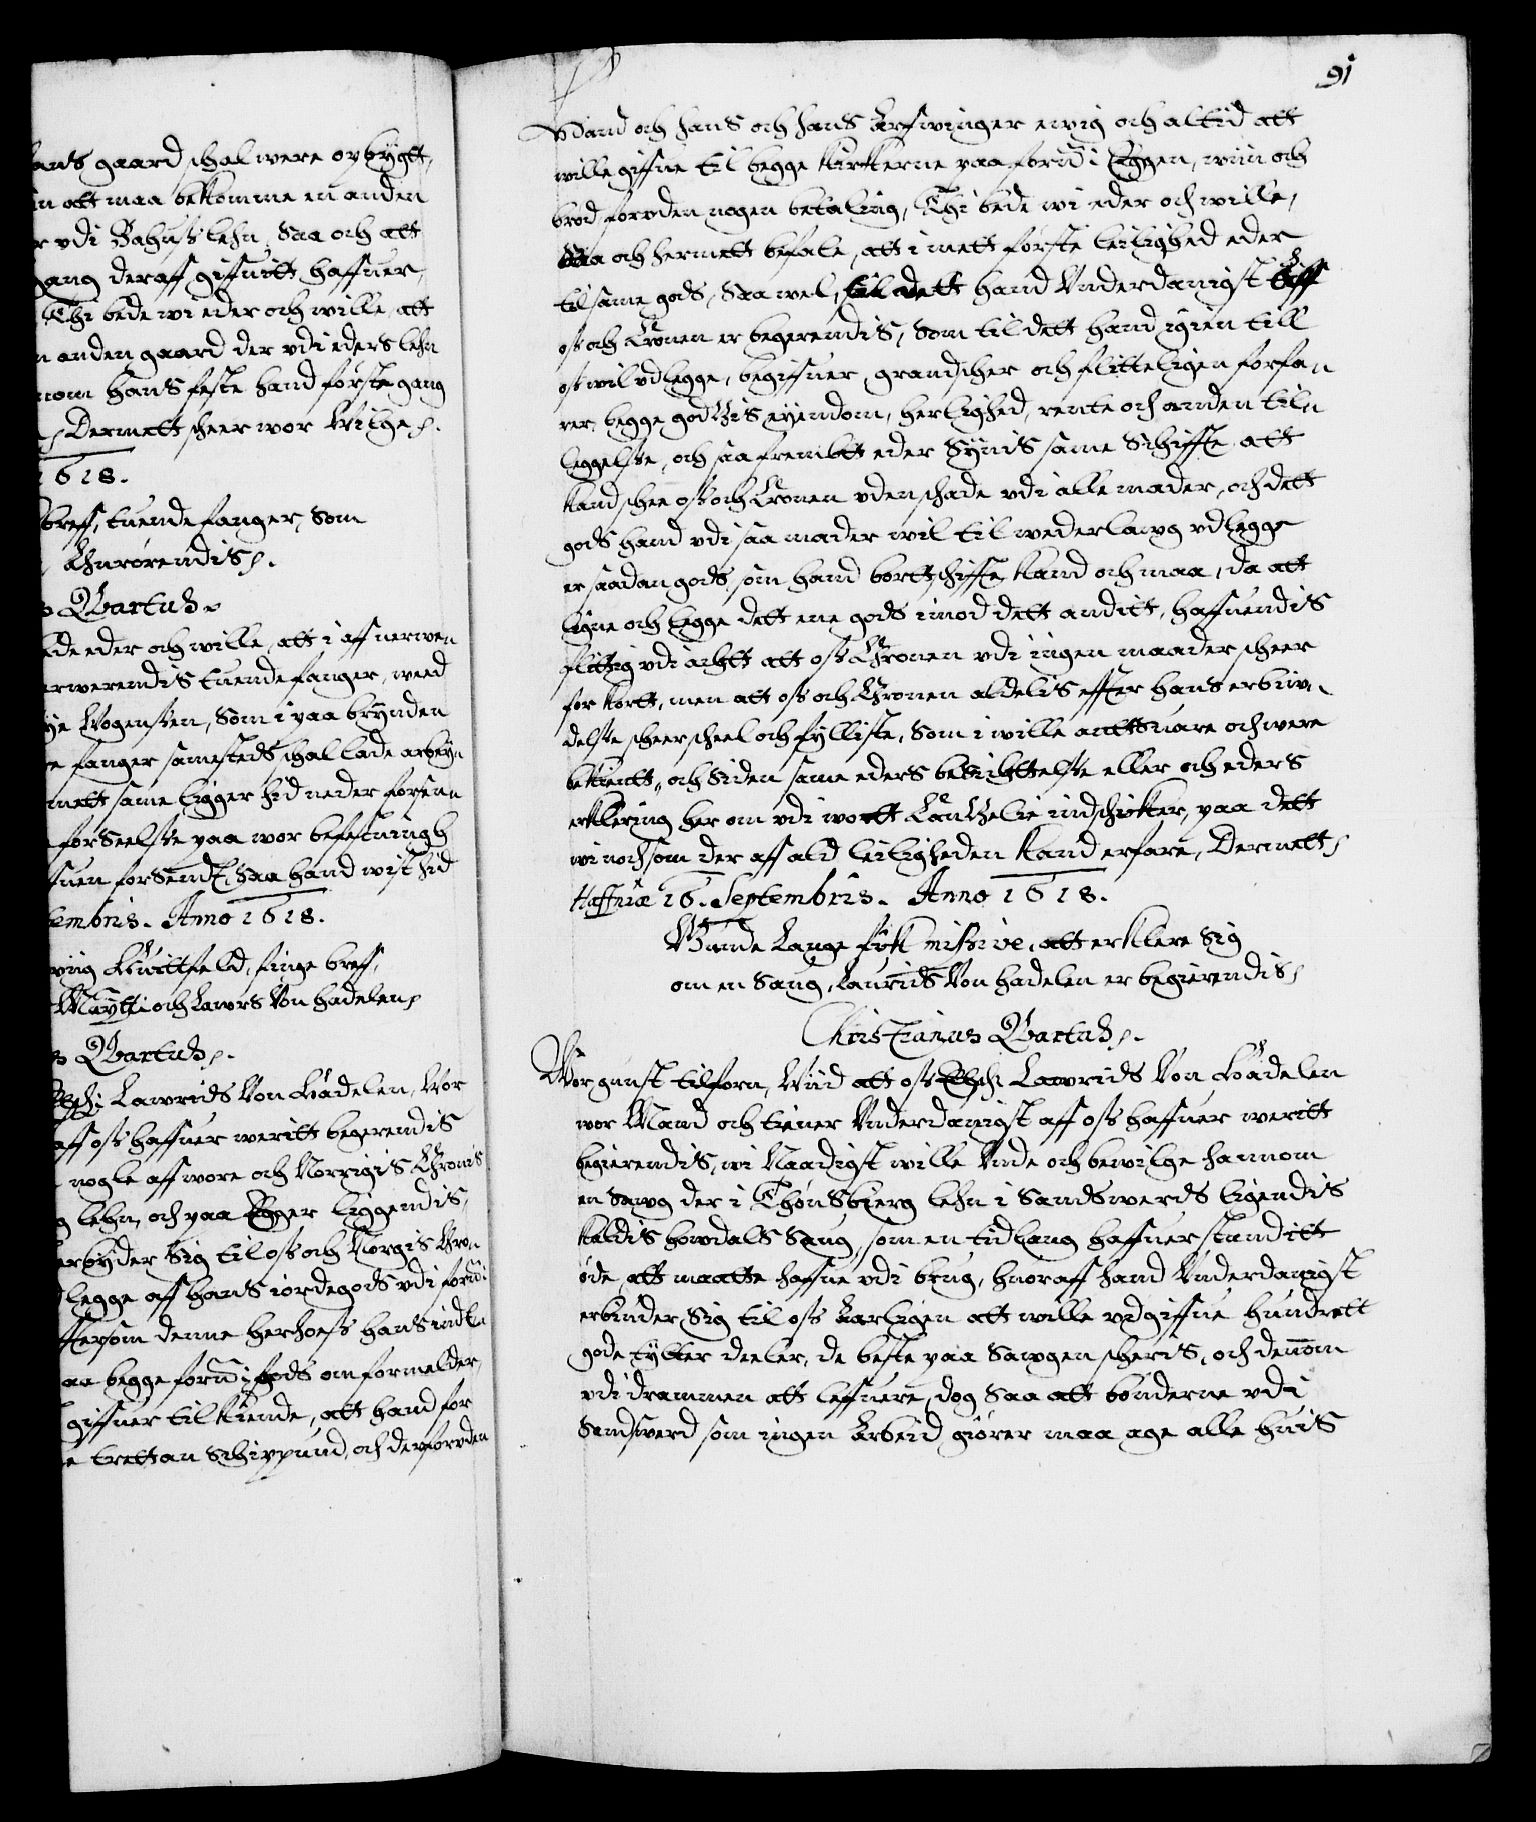 ans gaard schal were opbygt,
in att maa bekomme en anden
r vdi Bahus lehn, Saa och att
gang deraff giffuitt haffuer,
Thi bede wi eder och wille, att
n anden gaard der vdi eders lehn
nom hans feste hand første gang
Dermett scheer wor Wilge.
1618.
breff, tuende fanger, Som
Anrørendis.
s Qvartus.
ede eder och wille, att i aff
erwerendis tuende fanger, med
ye Mogensen, Som i paa
re fanger samesteds schal lade arbey„
mett same ligger hid neder forsen„
forseelse paa wor befestningh
fuen forsendt, Saa hand wist hid
tembris. Anno 1618.
ving Huittfeld, finge breff,
och Lawrs Von Hadelen,
s Qvartus.
Lawrids Von Hadelen, Wor
aff oss haffuer weritt begerendis
nogle aff wore och Norrigis Chronis
g lehn, och paa Egger liggendis,
erbyder Sig til oss och Norgis Chron
legge aff hans iordegods vdi forn:
ttersom denne herhoess hans indl„
aa begge forn: gods omformelder,
giffuer til kiende, att hand for
e trettan Schippund, och derforvden
91
Hand och hans och hans Arfwinger ewig och altid att
wille giffue til begge kirkerne paa forn: Eggen, wiin och
brød forvden nogen betaling, Thi bede wi eder och wille,
Saa och hermett befale, att i mett første leilighed eder
til same gods, Saa wel, til dett hand Vnderdanigst aff
oss och Cronen er begerendis, Som til dett hand igien till
oss wil vdlegge, begiffuer, grandscher och flitteligen forfa„
rer, begge godtzis eyendom, herlighed, rente och anden til„
leggelse, och saa frembt eder Synis same Schiffte att
kand schee oss och Cronen vden schade vdi alle mader, och dett
gods hand vdi saa mader wil til wederlawg vdlegge
er saadan gods, som hand bortschiffte kand och maa, da att
ligne och legge dett ene gods imod dett anditt, haffuendis
flittig vdi achtt att oss Chronen vdi ingen maader scheer
for kort, men att oss och Chronen aldelis effter hans erbiu„
delse scheer scheel och fylliste, Som i wille anttsuare och were
bekient, och Siden same eders besichttelse eller och eders
erklering her om vdi wortt Cantzelie indschicker, paa dett
wi noch som der aff ald leiligheden kand erfare, Dermett
Haffniæ 16. Septembris. Anno 1618.
Gunde Lange fick missive, att erklere Sig
om en Saug, Laurids Von Hadelen er begierendis,
Christianus Qvartus.
Wor gunst tilforn, Wiid att oss Elsch: Lawrids Von Hadelen
wor Mand och tiener Vnderdanigst aff oss haffuer weritt
begierendis, wi Naadigst wille Vnde och bewilge hannom
en Sawg der i Thønsberg lehn i Sandswerds ligendis
kaldis howdals Saug, som en tidlang haffuer standitt
øde, att maatte haffue vdi brug, huoraff hand Vnderdanigst
erbinder Sig til oss Aarligen att wille vdgiffue hundrett
gode tylter deeler, de beste paa Sawgen scheris, och dennom
vdi drammen att leffuere, dog Saa att bønderne vdi
Sandswerd som ingen Arbeid giører maa age alle huis